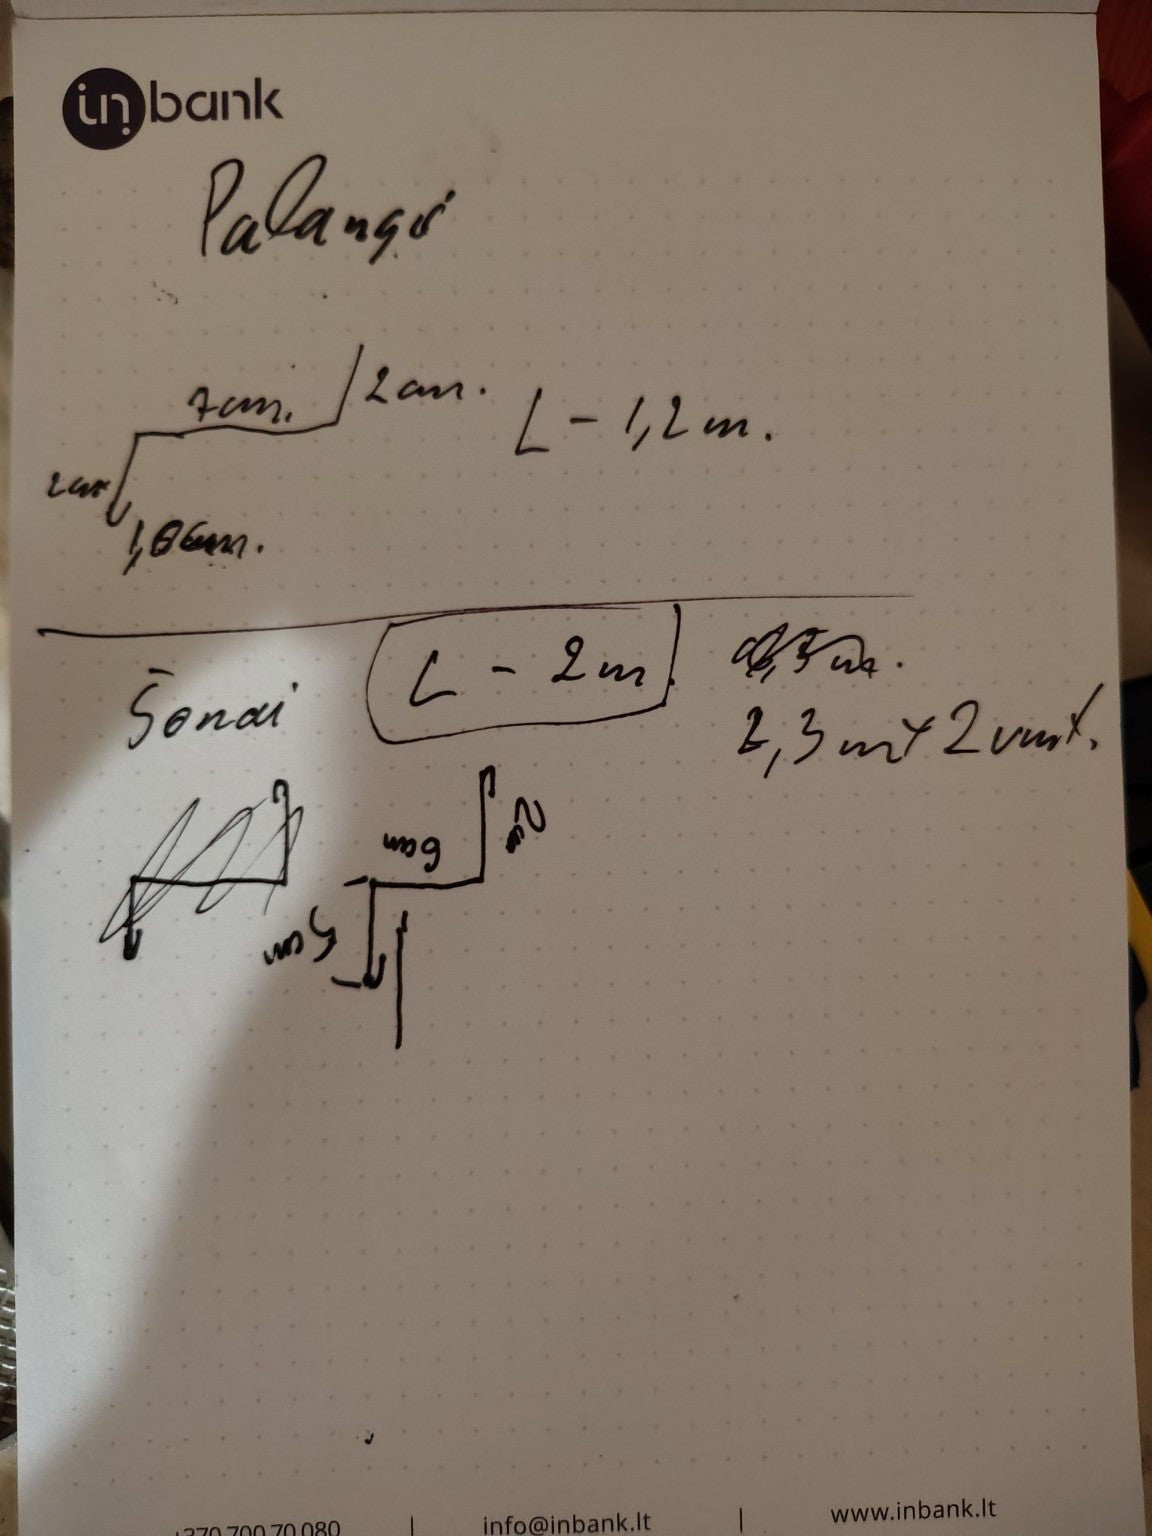 inbank
Palangė
7cm. 2cm. L - 1,2 m.
2cm
Šonai L - 2m.
2,3 m x 2 vnt.
6cm 2cm
5cm
+370 700 70 080 | info@inbank.lt | www.inbank.lt